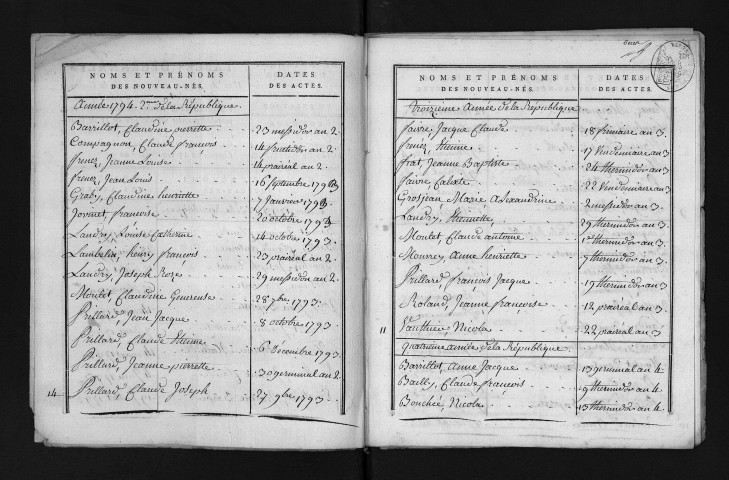 NOMS ET PRÉNOMS DES NOUVEAU-NÉS.
DATES DES ACTES.
Année 1794. 2.me de la République.
Barrillot, Claudine pierrette 23 messidor an 2.
Compagnon, Claude françois 14 fructidor an 2.
frenez, Jeanne Louise 14 prairéal an 2.
frenez, Jean Louis 16 septembre 1793
Claudine henriette 7 Janvier 1793.
françoise 20 octobre 1793
Landry, Louise Catherine 14 octobre 1793.
Lambelin, henry françois 23 prairéal an 2.
Landry, Joseph Rose 29 messidor an 2.
Moutet, Claudine Genereuse 28 7bre 1793.
Prillard, Jean Jacque 8 octobre 1793.
Prillard, Claude Etienne 6 Décembre 1793.
Prillard, Jeanne pierrette 30 germinal an 2.
14 Prillard, Claude Joseph 27 9bre 1793.
NOMS ET PRÉNOMS DES NOUVEAU-NÉS.
DATES DES ACTES.
Troizieme Année de la République
faivre, Jacque Claude 18 frimaire an 3.
frenez, Etienne 17 Vendemiaire an 3.
Jeanne Baptiste 24 thermidor an 3.
faivre, Calixte 22 Vendemiaire an 3
Grosjean Marie Alexandrine 2 messidor an 3.
Landry, Etiennette 29 thermidor an 3.
Moutet, Claude antoine 1er thermidor an 3.
Mourey, Anne henriette 7 thermidor an 3.
Prillard, françois Jacque 19 thermidor an 3.
Roland, Jeanne françoise 12 prairéal an 3.
11 Vauthier, Nicola 22 prairéal an 3.
Quatrieme année de la République
Barrillot, Anne Jacque 13 germinal an 4.
Bailly, Claude françois 9 thermidor an 4.
Bouchée, Nicola 13 thermidor an 4.